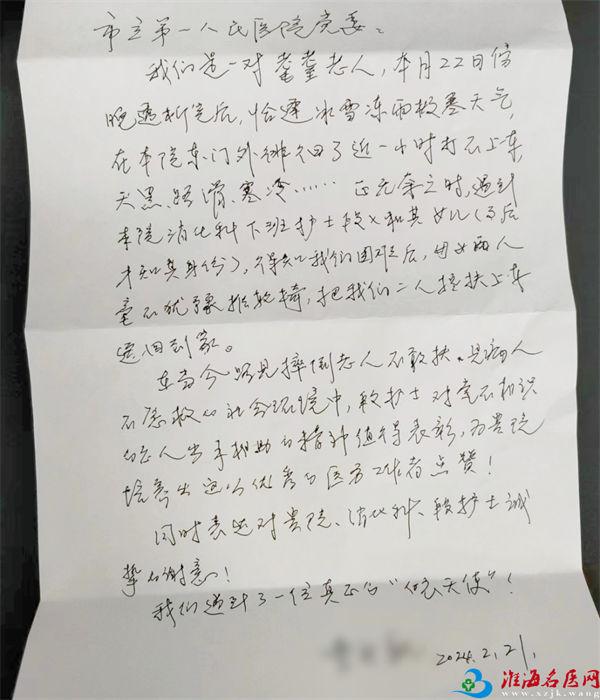 市立第一人民医院党委：
我们是一对耄耋老人，本月22日傍
晚透析完后，恰逢冰雪冻雨极寒天气，
在本院东门外徘徊了近一小时打不上车，
天黑、路滑、寒冷……正无奈之时，遇到
本院消化科下班护士段×和其女儿（多后
才知其身份），得知我们困难后，母女两人
毫不犹豫推轮椅，把我们二人搀扶上车
送回到家。
在当今路见摔倒老人不敢扶、见病人
不愿救的社会环境中，段护士对毫不相识
的老人出手相助的精神值得表彰，为贵院
培养出这么优秀的医务工作者点赞！
同时表达对贵院、消化科、段护士诚
挚的谢意！
我们遇到了一位真正的“白衣天使”！
2024.2.21.
淮海名医网
www.xzjk.wang